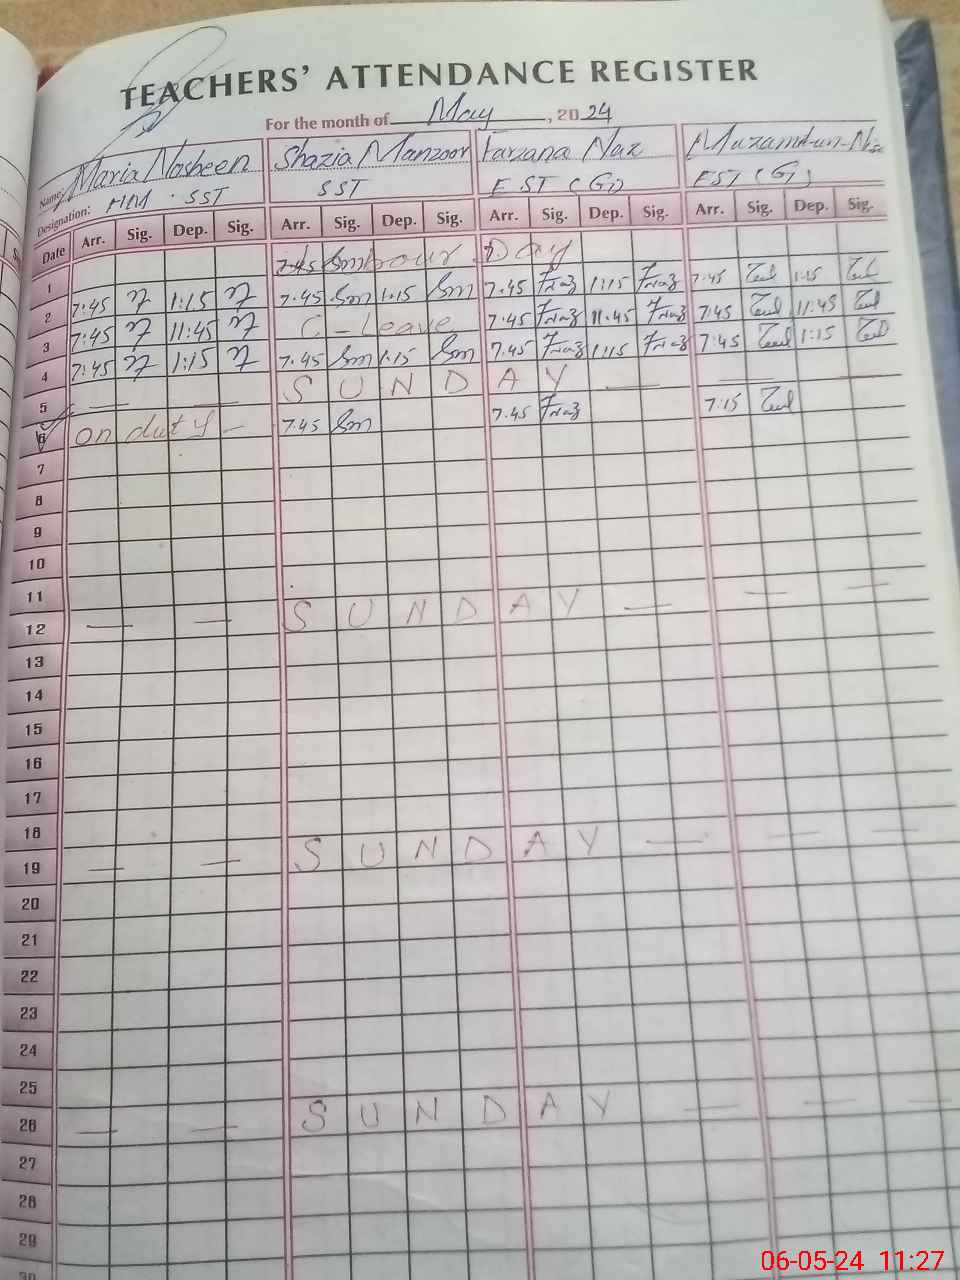 TEACHERS' ATTENDANCE REGISTER
For the month of May, 2024
Name: Maria Nosheen Shazia Manzoor Farzana Naz
Designation: HM . SST SST EST (G) EST (G)
Date Arr. Sig. Dep. Sig. Arr. Sig. Dep. Sig. Arr. Sig. Dep. Sig. Arr. Sig. Dep. Sig.
1 Day
2 7:45 1:15 7.45 Sm 1.15 Sm 7.45 1:15 7:45 1:15
3 7:45 11:45 C-Leave 7.45 11.45 7:45 11:45
4 7:45 1:15 7.45 Sm 1.15 Sm 7.45 1:15 7:45 1:15
5 — — S U N D A Y — — —
6 on duty - 7.45 Sm 7.45 7:15
7
8
9
10
11
12 — — S U N D A Y — — —
13
14
15
16
17
18
19 — — S U N D A Y — — —
20
21
22
23
24
25
26 — — S U N D A Y — — —
27
28
29
30
06-05-24 11:27